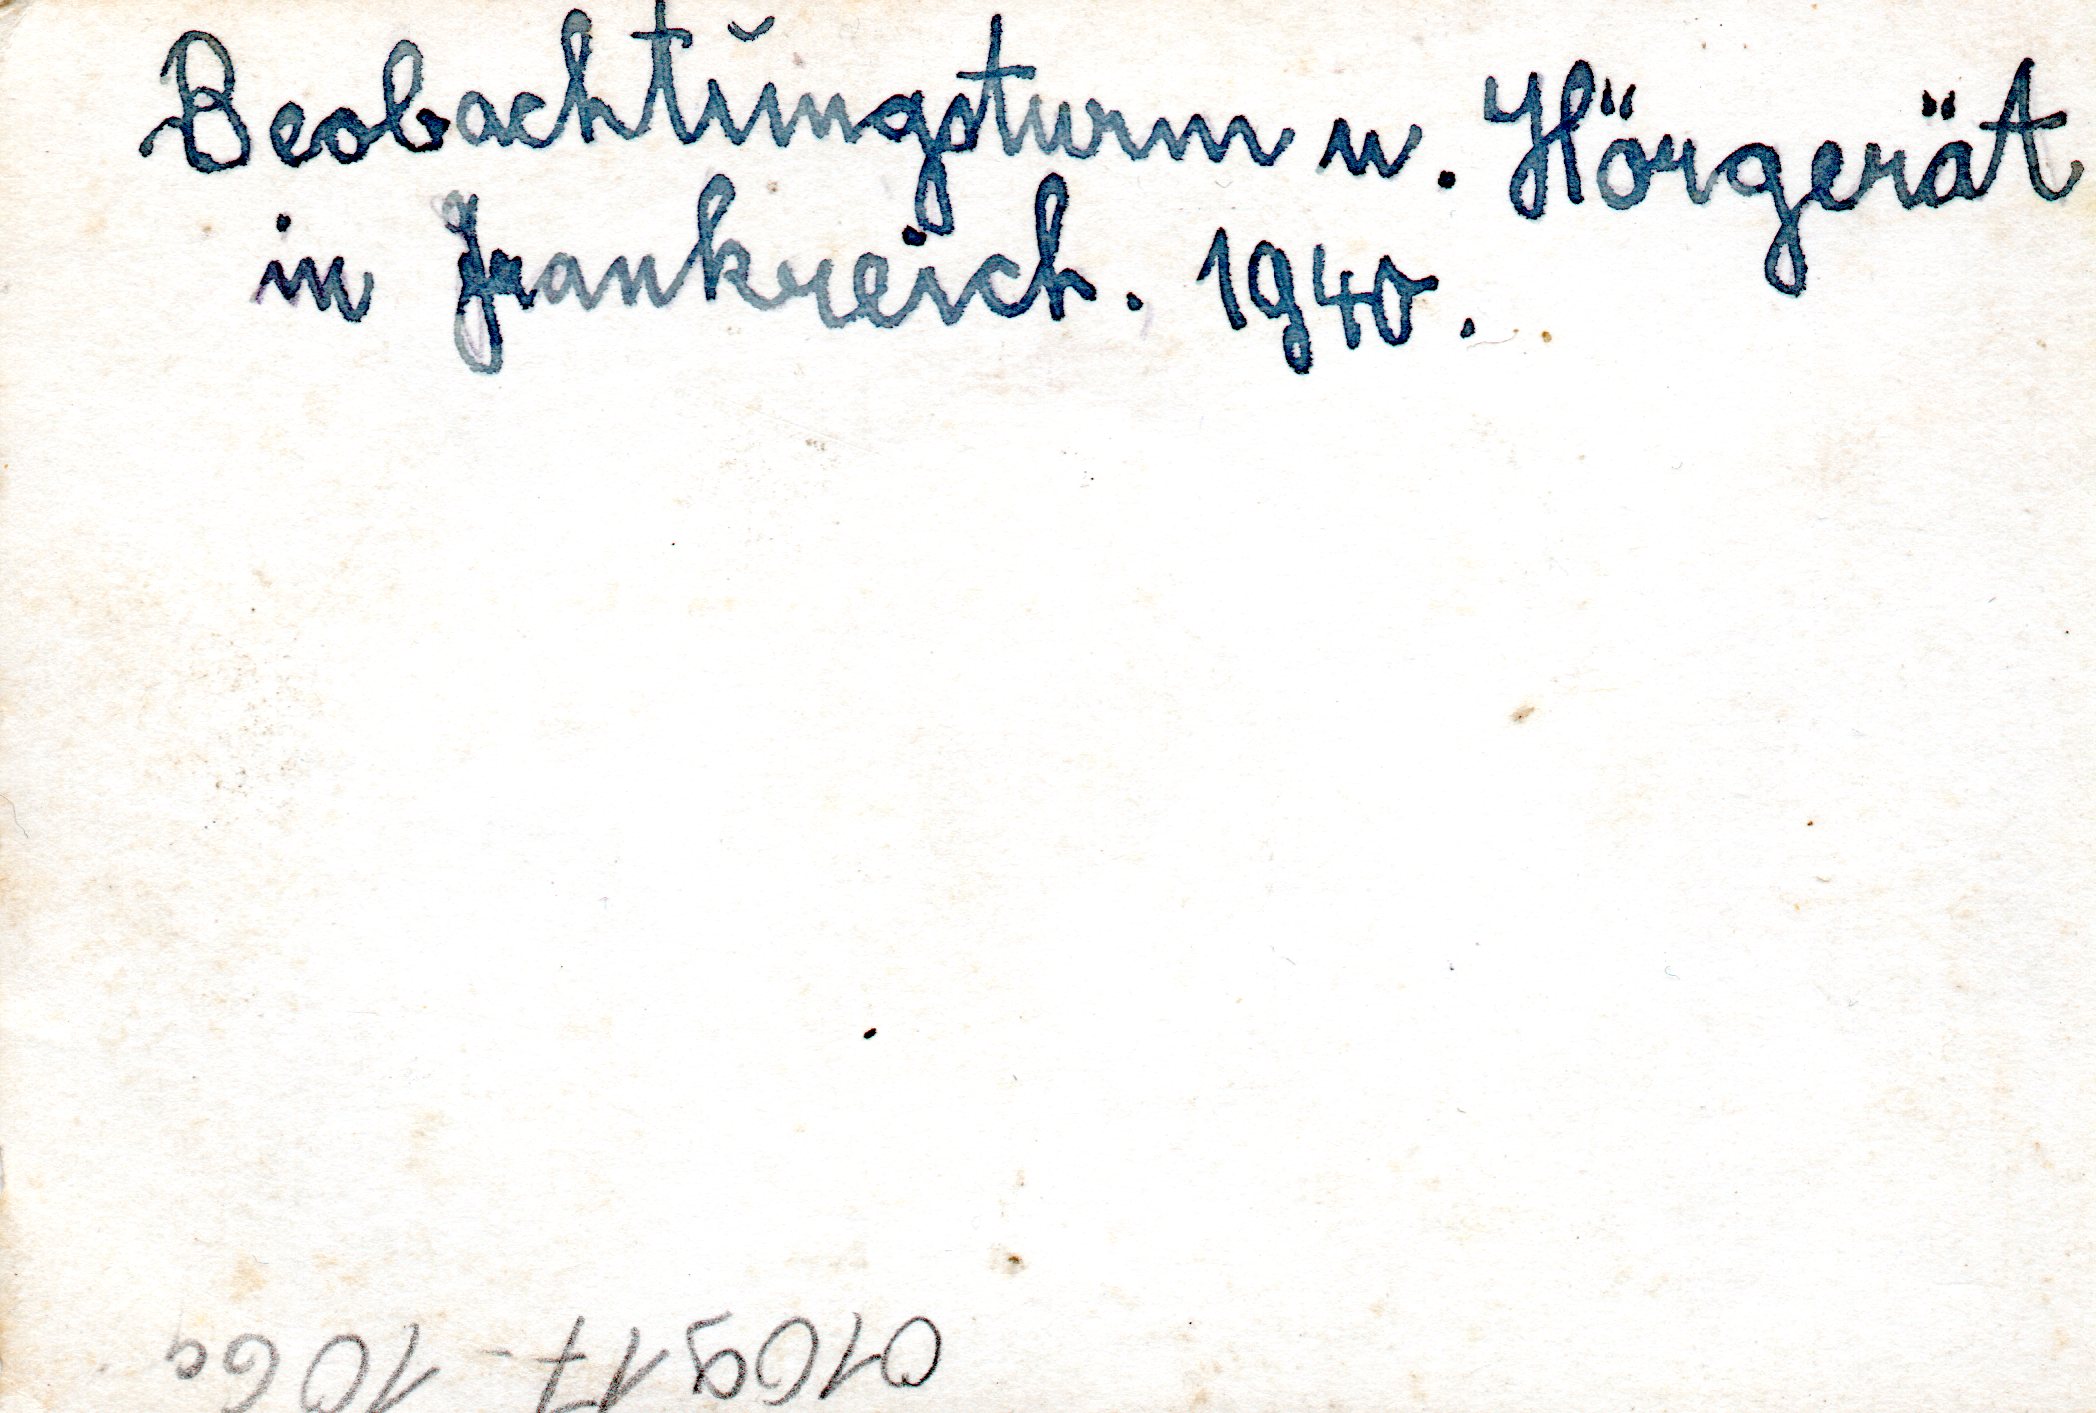 Beobachtungsturm u. Hörgerät
in Frankreich. 1940.